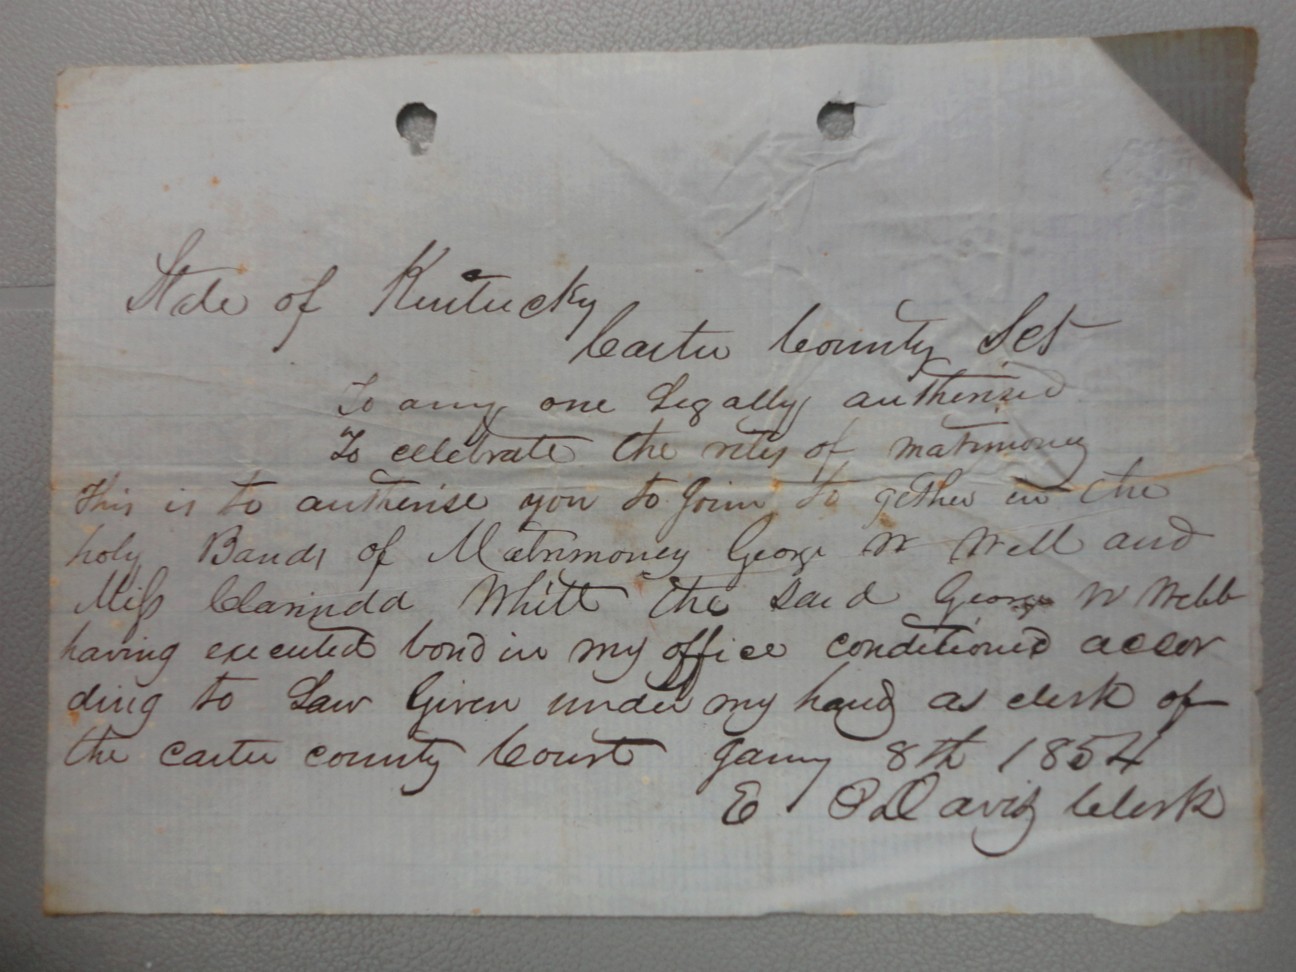 State of Kentucky
Carter County Sct
To any one Legally authorised
To celebrate the rites of matrimoney
This is to authorise you to Join to gether in the
holy Bands of Matrimoney George W Webb and
Miss Clarinda Whitt the said George W Webb
having executed bond in my office conditioned accor
ding to Law Given under my hand as clerk of
the carter county Court Jany 8th 1854
E Davis Clerk